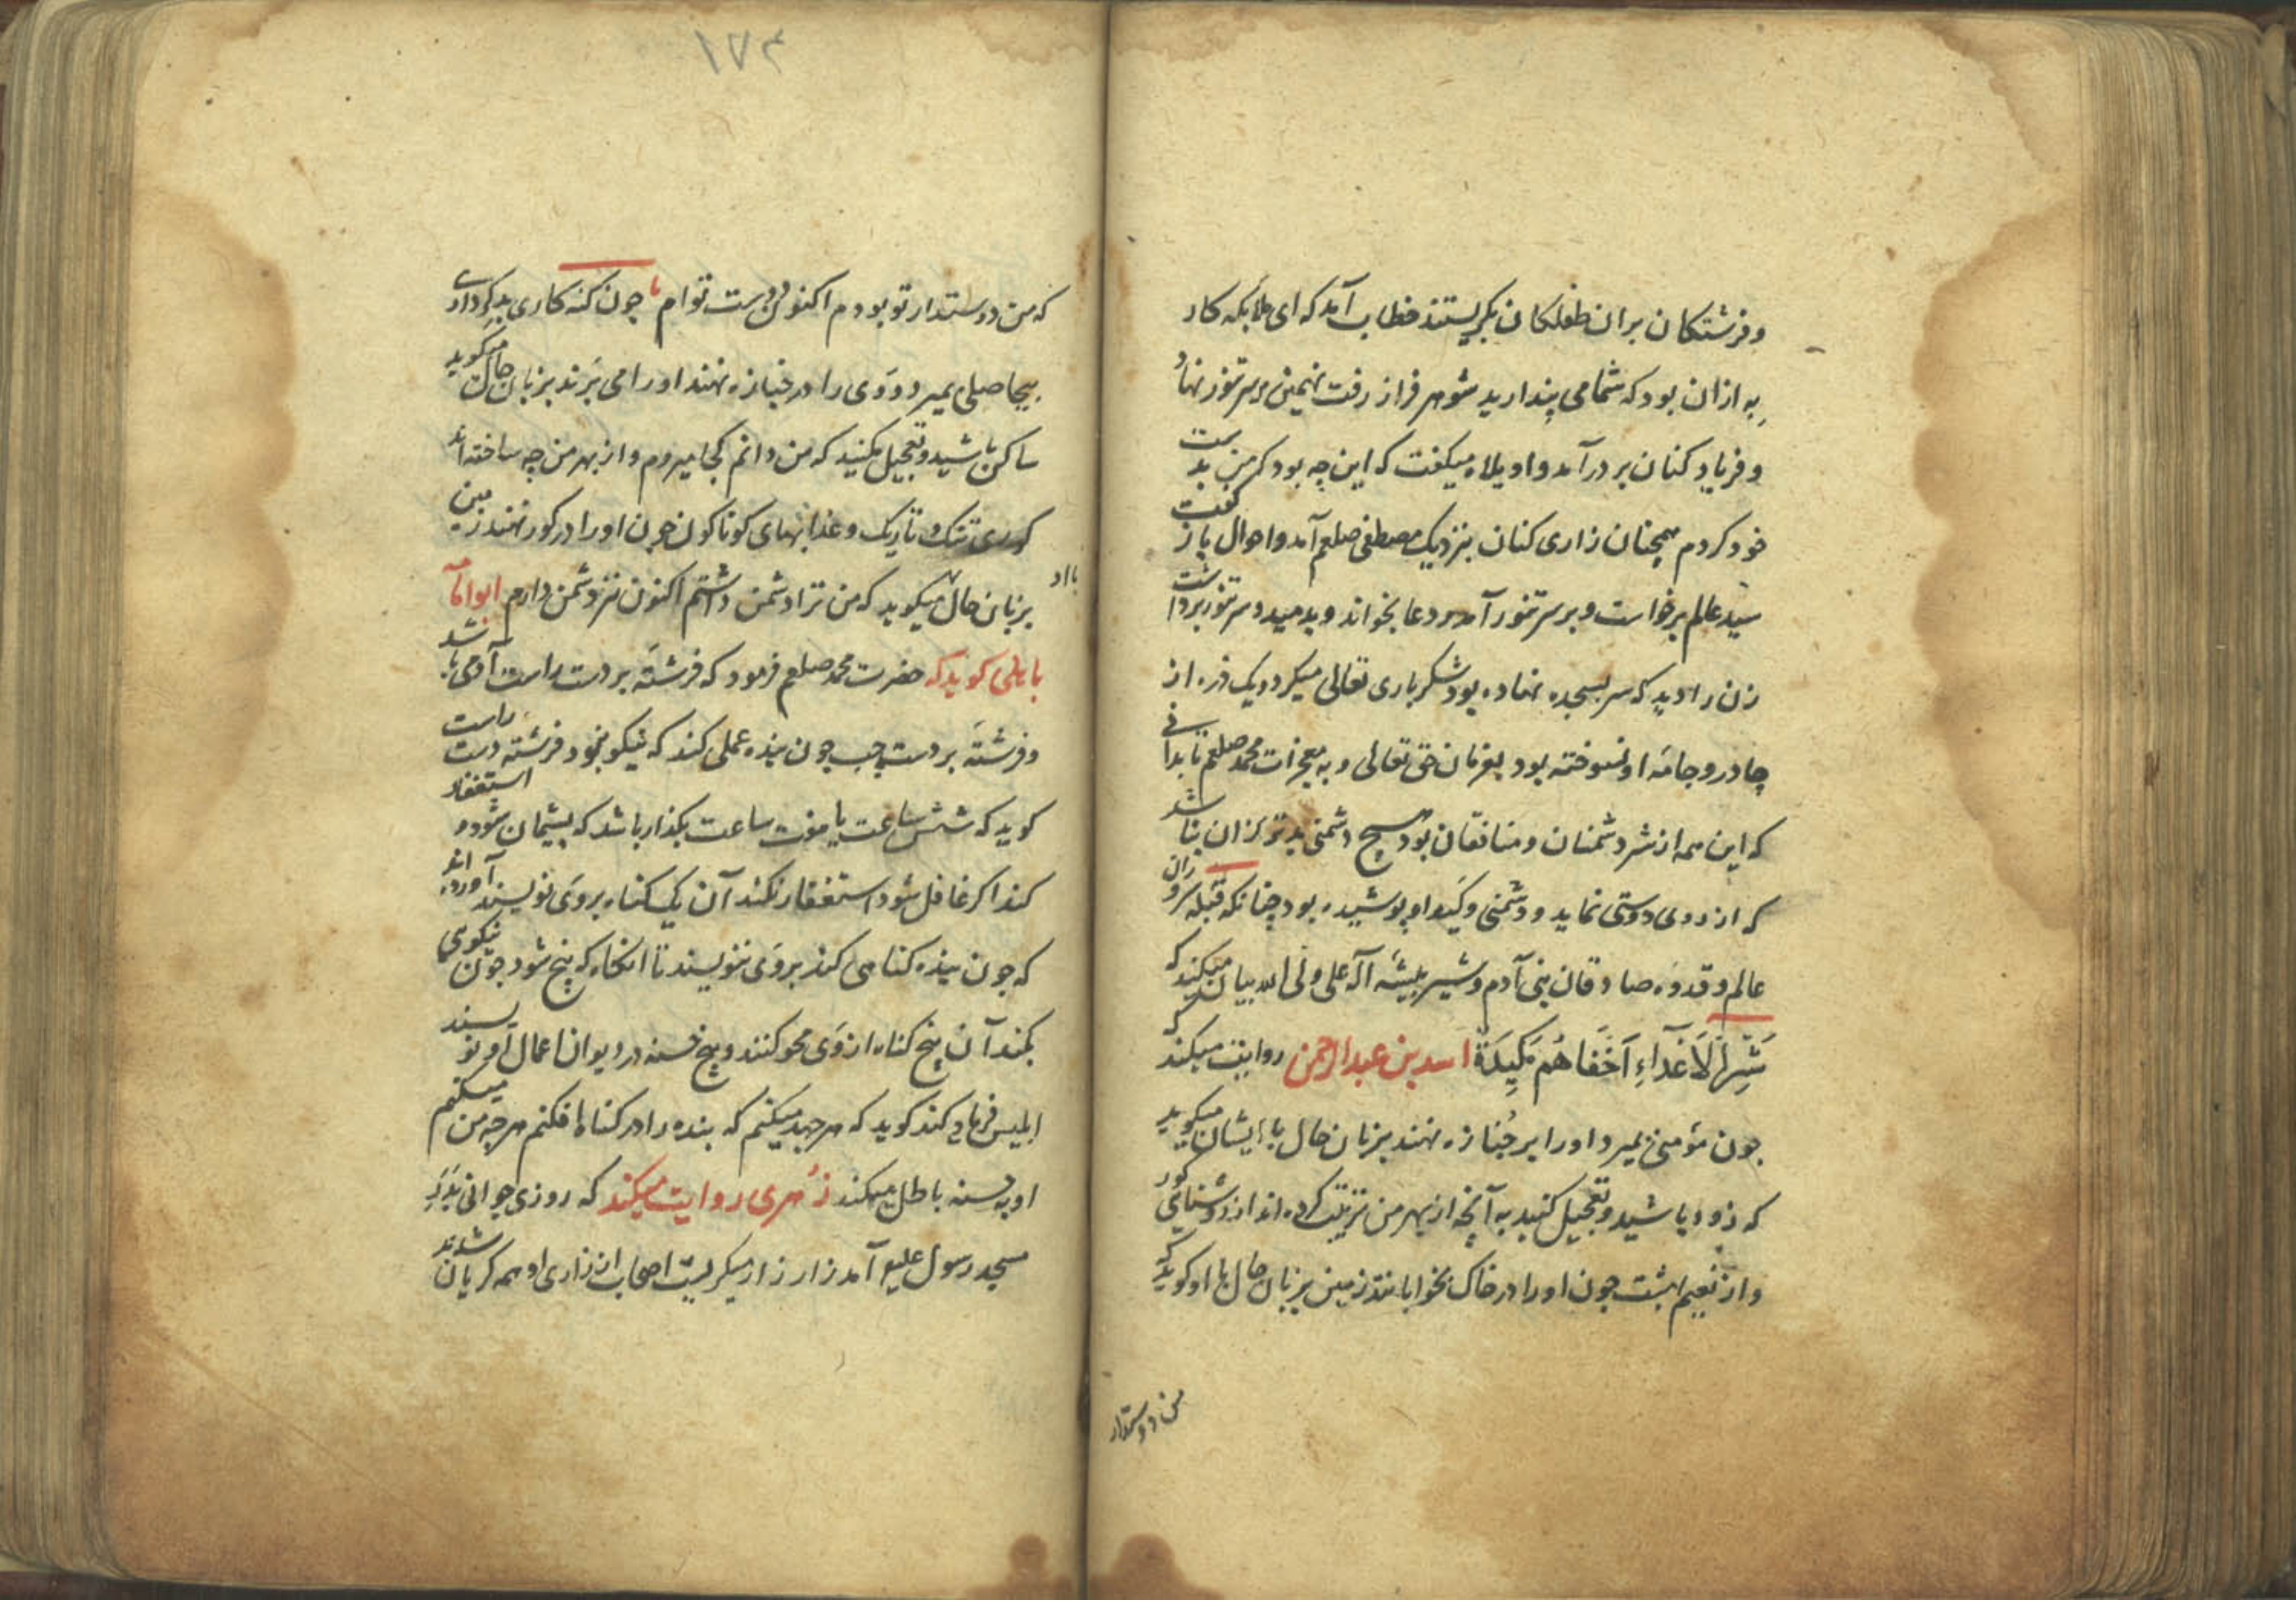 و فرشتکان بران طفلکان بکریستند خطاب آمد که ای ملایکه کار
به ازان بود که شما می پندارید شوهر فراز رفت نهنبن بر سر تنور نهاد
و فریاد کنان بر در آمد واویلاه میکفت که این چه بود که من بدست
خود کردم همچنان زاری کنان بنزدیک مصطفی صلعم آمد و احوال باز کفت
سید عالم برخواست و بر سر تنور آمد و دعا بخواند و بدمید و سر تنور برداشت
زن را دید که سر بسجده نهاده بود شکر باری تعالی میکرد و یک ذره از
چادر و جامۀ او نسوخته بود بفرمان حق تعالی و به معجزات محمد صلعم تا بدانی
که این همه از شر دشمنان و منافقان بود هیچ دشمنی بدتر از ان نباشد
که از روی دوستی نماید و دشمنی و کید او پوشیده بود چنانکه قبله سروران
عالم و قدوه صادقان بنی آدم و شیر بیشه اله علی ولی الله بیان میکند که
شَرُّ الْاَعْدَاءِ اَخْفَاهُم مَکِیدَةً اسد بن عبدالرحمن روایت میکند که
چون مؤمنی بمیرد او را بر جنازه نهند بزبان حال با ایشان میکوید
که زود باشید و تعجیل کنید به آنچه از بهر من ترتیب کرده اند از روشنایی کور
و از نعیم بهشت چون او را در خاک بخوابانند زمین بزبان حال با او کوید که
من دوستدار
۱۷۴
که من دوستدار تو بودم اکنون دوست توام با چون کنه کاری بد کرداری
بیحاصلی بمیرد و وی را در جنازه نهند او را می برند بزبان حال میکوید
ساکن باشید و تعجیل مکنید که من دانم کجا میروم و از بهر من چه ساخته اند
کوری تنک و تاریک و عذابهای کوناکون چون او را در کور نهند زمین
با او
بزبان حال میکوید که من ترا دشمن داشتم اکنون نیز دشمن دارم ابو امامه
باهلی کوید که حضرت محمد صلعم فرمود که فرشته بر دست راست آدمی باشد
و فرشته بر دست چپ چون بنده عملی کند که نیکو نبود فرشته دست راست
کوید که شش ساعت یا هفت ساعت بکذار باشد که پشیمان شود و استغفار
کند اکر غافل شود استغفار نکند آن یک کناه بر وی نویسند آورده اند
که چون بنده کناهی کند بر وی ننویسند تا آنکاه که پنج شود چون نیکویی
بکند آن پنج کناه از وی محو کنند و پنج حسنه در دیوان اعمال او نویسند
ابلیس فریاد کند کوید که هر جهد میکنم که بنده را در کناه افکنم هر چه من میکنم
او به حسنه باطل میکند زهری روایت میکند که روزی جوانی بدر
مسجد رسول علیه آمد زار زار میکریست اصحاب از زاری او همه کریان شدند